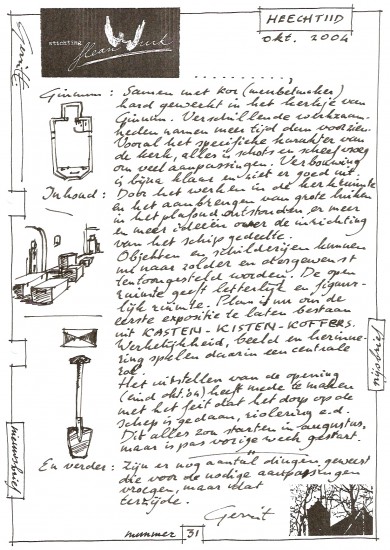 stichting
HEECHTIID
okt. 2004
Ginnum : Samen met Kor (meubelmaker)
hard gewerkt in het kerkje van
Ginnum. Verschillende werkzaam-
heden namen meer tijd dan voorzien.
Vooral het specifieke karakter van
de kerk, alles is schots en scheef vroeg
om veel aanpassingen. Verbouwing
is bijna klaar en ziet er goed uit.
Inhoud : Door het werken in de kerkruimte
en het aanbrengen van grote luiken
in het plafond ontstonden, er meer
en meer ideeën over de inrichting
van het schipgedeelte.
Objekten en schilderijen kunnen
nu naar zolder en
tentoongesteld worden. De open
ruimte geeft letterlijk en figuur-
lijk ruimte. Plan is nu om de
eerste expositie te laten bestaan
uit KASTEN - KISTEN - KOFFERS.
Werkelijkheid, beeld en herinne-
ring spelen daarin een centrale
rol.
Het uitstellen van de opening
(eind okt. '04) heeft mede te maken
met het feit dat het dorp op de
schep is gedaan, riolering e.d.
Dit alles zou starten in augustus,
maar is pas vorige week gestart.
En verder : Zijn er nog aantal dingen geweest
die voor de nodige aanpassingen
vroegen, maar dat
terzijde.
Gerrit
nummer 31
nijsbrief
nieuwsbrief